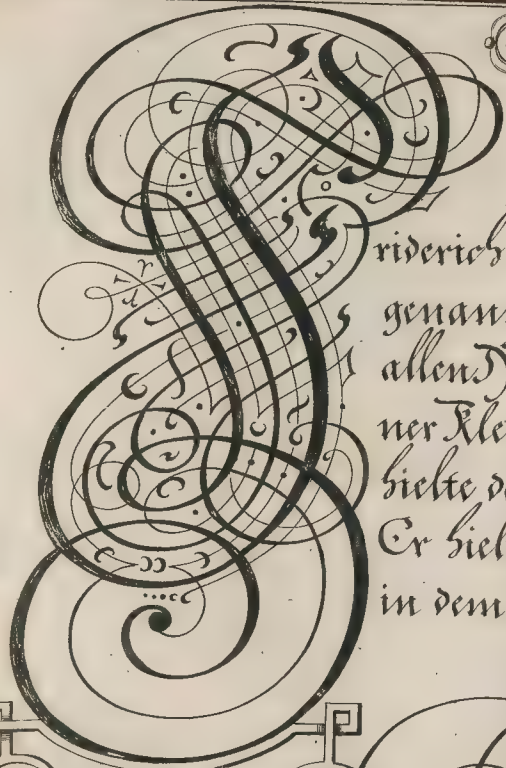 Friderich
genan
allen
ner Kle
hielte d
Er hiel
in dem